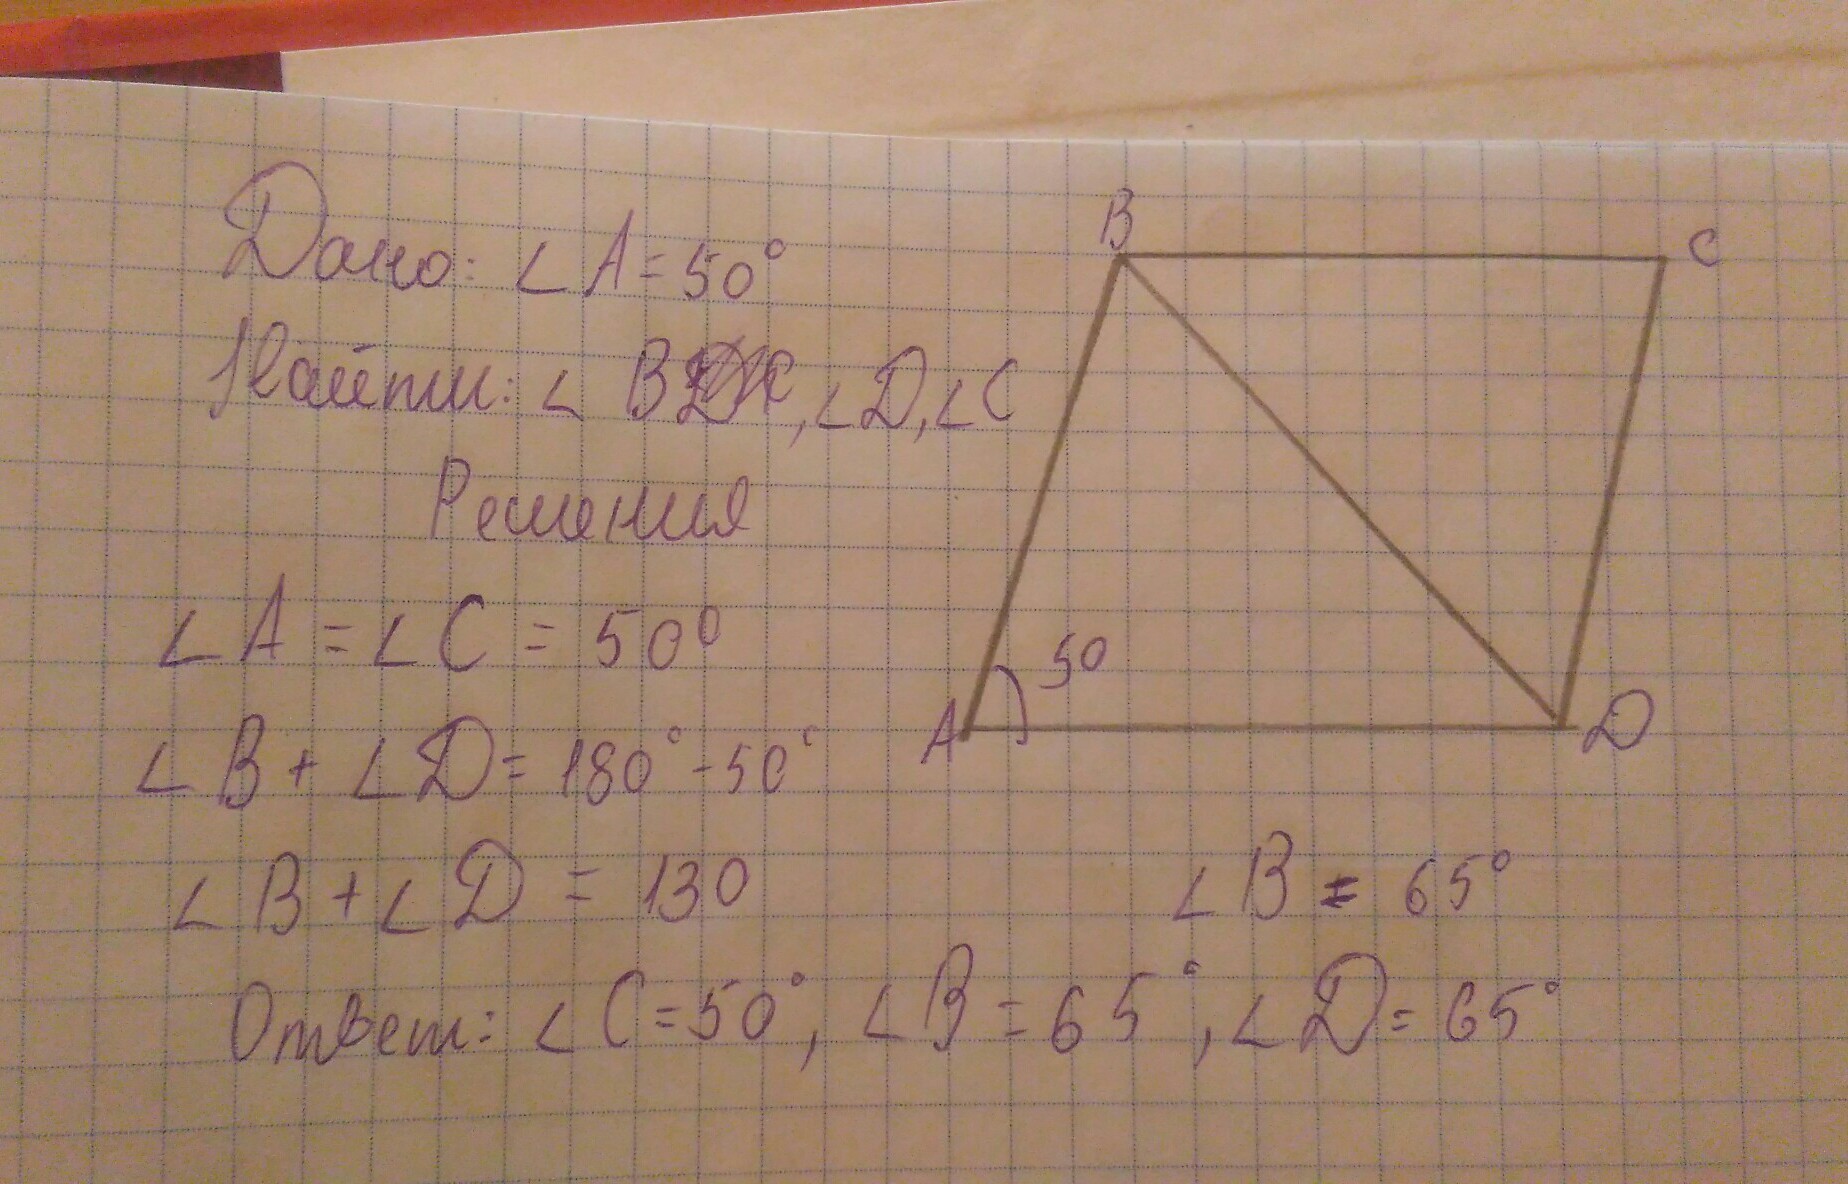 Дано: ∠A=50°
Найти: ∠B, ∠D, ∠C
Решения
∠A = ∠C = 50°
∠B + ∠D = 180° - 50°
∠B + ∠D = 130
∠B = 65°
Ответ: ∠C = 50°, ∠B = 65°, ∠D = 65°
B
C
50
A
D